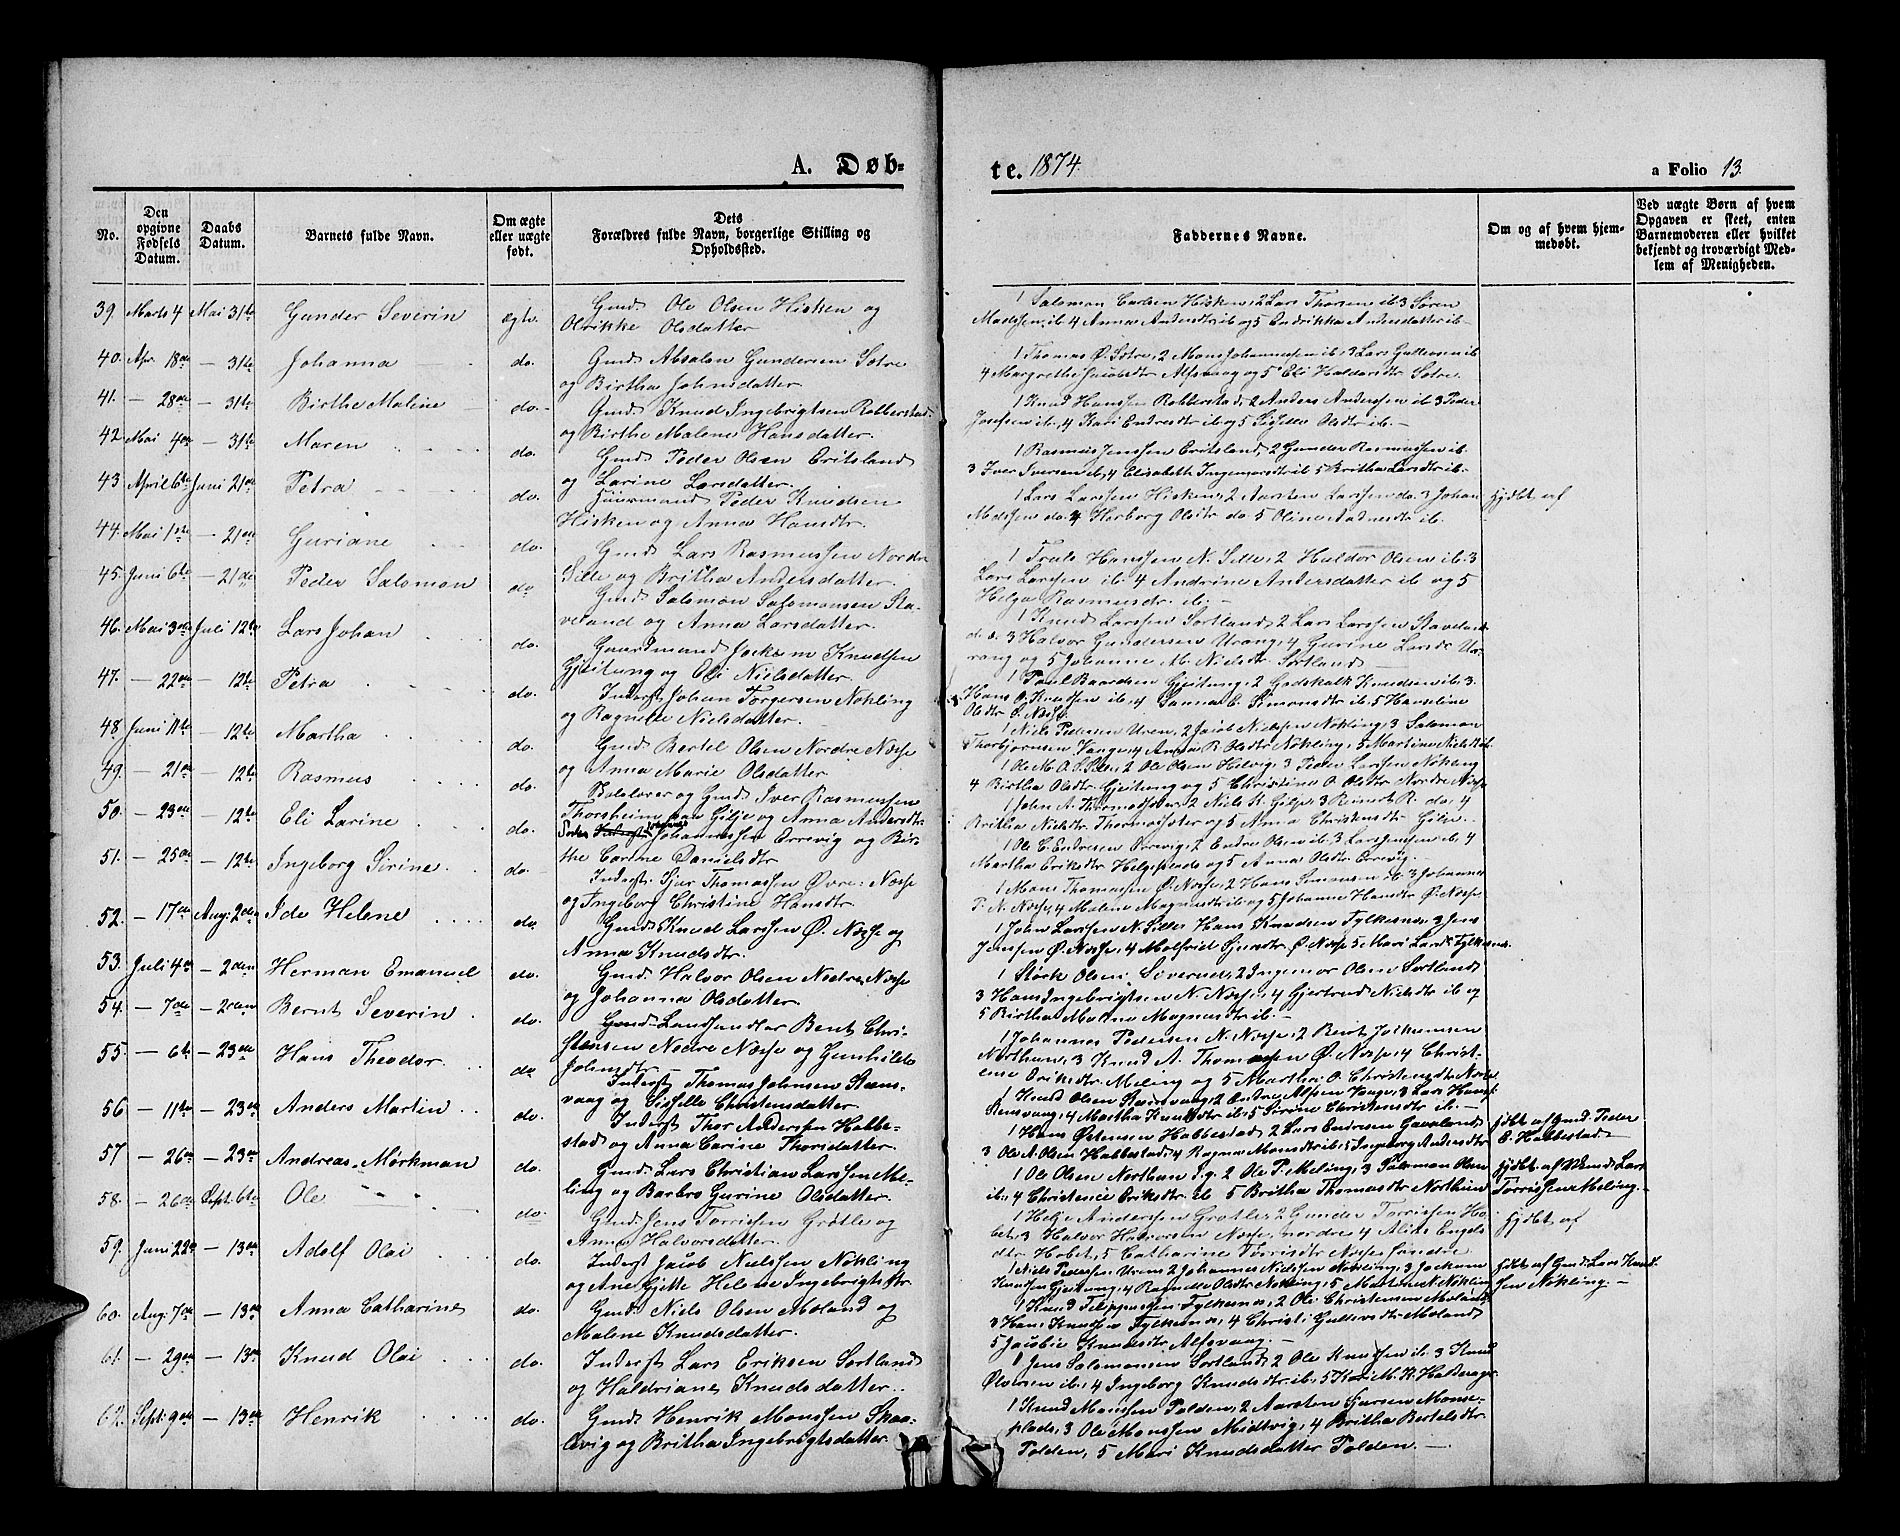 A. Døb-
te. 1874.
a Folio 13.
No.
Den opgivne Fødsels Datum.
Daabs Datum.
Barnets fulde Navn.
Om ægte eller uægte født.
Dets Forældres fulde Navn, borgerlige Stilling og Opholdssted.
Faddernes Navne.
Om og af hvem hjemmedøbt.
Ved uægte Børn af hvem Opgaven er skeet, enten Barnemoderen eller hvilket bekjendt og troværdigt Medlem af Menigheden.
39. Marts 4 Mai 31te Gunder Severin ægte.
Gmd. Ole Olsen Hisken og
Olrikke Olsdatter
1 Salomon Carlsen Hisken, 2 Lars Thorsen ib. 3 Søren
Madssen ib. 4 Anna Andersdtr ib og 5 Endrikka Andersdatter ib.
40. Apr. 18de — 31te Johanna do.
Gmd. Absalon Gundersen Sotre
og Birtha Johnsdatter
1 Thomas O. Sotre, 2 Mons Johannessen ib, 3 Lars Gullovsen ib
4 Margrethe Jacobsdtr Alfsvaag og 5 Eli Haldorsdtr Sotre.
41. — 28de — 31te Birthe Malene do.
Gmd. Knud Ingebrigtsen Robberstad
og Birthe Malene Hansdatter.
1 Knud Hanssen Robberstad, 2 Anders Andersen ib 3 Peder
Josefsen ib, 4 Kari Endresdtr ib og 5 Sisilie Olsdtr ib.
42. Mai 4de — 31te Maren do.
Gmd. Peder Olsen Eritsland
og Larine Larsdatter.
1 Rasmus Jenssen Eritsland, 2 Gunder Rasmussen ib.
3 Iver Iversen ib, 4 Elisabeth Ingemorsdtr ib 5 Britha Larsdtr ib.
43. April 6te Juni 21de Petra do.
Huusmand Peder Knudsen
Hisken og Anna Hansdtr.
1 Lars Larssen Hisken, 2 Aarsten Larssen do. 3 Johan
Madssen do. 4 Herborg Olsdtr do 5 Oline Aadnesdtr ib.
hjdbt. af
44. Mai 1ste — 21de Guriane do.
Gmd. Lars Rasmussen Nordre
Sille og Britha Andersdatter.
1 Truls Hanssen N. Sille, 2 Haldor Olsen ib. 3
Lars Larssen ib. 4 Andrine Andersdatter ib og 5
Helga Rasmusdtr. ib.
45. Juni 6te — 21de Peder Salomon do
Gmd. Salomon Salomonsen Sta-
veland og Anna Larsdatter.
1 Knud Larssen Sortland 2 Lars Larssen Staveland
d.o. 3 Halvor Gundersen Urang, 4 Gurine Larsdr Ur-
rang og 5 Johanne M. Nielsdtr. Sortland
46. Mai 3de Juli 12te Lars Johan do.
Gaardmand Jockum Knudsen
Gjeitung og Eli Nielsdatter.
1 Paul Baardsen Gjeitung, 2 Godskalk Knudsen ib. 3
Hans O. Knudsen ib, 4 Sanna C. Simonsdtr ib. 5 Hanseline
Olsdtr Ø. Næsse
47. — 22de — 12te Petra do.
Inderst Johan Torgersen Nøkling
og Ragnele Nielsdatter.
1 Niels Pedersen Uren, 2 Jacob Nielsen Nøkling, 3 Salomon
Thorbjørnsen Vange, 4 Anna R. Olsdtr Nøkling, 5 Martine Nielsdtr
48. Juni 11te — 12te Martha do.
Gmd. Bertel Olsen Nordre Næsse
og Anna Marie Olsdatter
1 Ole M. O. S. Sele, 2 Ole Olsen Helvig, 3 Peder Larssen Nøkling
4 Birtha Olsdtr. Gjeitung og 5 Christine O. Olsdtr Nordre Næsse
49. — 21de — 12te Rasmus do.
og Gmd. Iver Rasmussen
Thorsheim paa Gilje og Anna Andersdtr.
1 John A. Thomashster, 2 Niels K. Gilje, 3 Reinert R. do, 4
Britha Nielsdtr. Thomashster og 5 Anna Christensdtr Gilje.
50. — 23de — 12te Eli Larine do.
Johannessen Errevig og Bir-
the Carine Danielsdtr
1 Ole E. Endresen Ørrevig, 2 Endre Olsen ib. 3 Lars Jenssen ib. 4
Martha Eriksdtr. Helgesende og 5 Anna Olsdtr Errevig.
51. — 25de — 12te Ingeborg Sirine do.
Inderst. Sjur Thomassen Øvre-Næsse
og Ingeborg Christine Hansdtr
1 Mons Thomassen Ø. Næsse, 2 Hans Simonsen ib. 3 Johannes
P. N. Næsse, 4 Malene Magnusdtr ib og 5 Johanne Hansdtr Ø. Næsse.
52. — 17de Aug: 2den Ida Helene do.
Gmd. Knud Larssen Ø. Næsse og
Anna Knudsdtr.
1 John Larssen N. Sille, Hans Knudsen Fylkesnæs, 3 Jens
Jenssen Ø. Næsse, 4 Malfrid Sjursdtr. Ø. Næsse 5 Mari Larsdr Fylkesnæs.
53. Juli 4de — 2den Herman Emanuel do.
Gmd. Halvor Olsen Nedre Næsse
og Johanna Olsdatter.
1 Størk Olsen 2 Ingemor Olsen Sortland
3 Hans Ingebrigtsen N. Næsse, 4 Gjertrud Nielsdtr ib og
5 Birtha Malene Magnusdtr ib.
54. — 7de — 2den Bernt Severin do.
Landhandler Bent Chri-
stensen Nedre Næsse og Gunhilde
Johnsdtr
1 Johannes Pedersen N. Næsse, 2 Bent Jockumsen
Northun, 3 Knud A. Thomassen Ø. Næsse, 4 Christ-
ense Eriksdtr. Meling og 5 Martha O. Christensdtr Næsse
55 — 6te — 23de Hans Theodor do
Inderst Thomas Johnsen Steens-
vaag og Sisselle Christensdatter
1 Knud Olsen Steinsvaag, 2 Endre Alfsen Vage, 3 Lars Hanss
Stensvaag, 4 Martha Knudsdtr ib, 5 Sirine Christensdtr ib.
56 — 11te — 23de Anders Martin do.
Inderst Thor Andersen Habbe-
stad og Anna Carine Thorsdatter
1 Hans Østensen Habbestad, 2 Lars Endresen Gaaland
3 Ole A. Olsen Habbestad, 4 Ragna Monsdtr ib, 5 Ingeborg Andersdtr
hjdbt af Gmd. Peder
E. Habbestad
57 — 26de — 23de Andreas Mørkman do.
Gmd. Lars Christian Larssen Me-
ling og Barbro Gurine Olsdatter.
1 Ole Olsen Northun 2 Ole P. Meling, 3 Salomon Olsen
ib, 4 Christense Eriksdtr. ib 5 Britha Thomasdtr Northun
hjdbt. af Lars
Torrissen Meling.
58. — 26de Sept. 6te Ole do.
Gmd. Jens Torrissen Grøtle og
Anna Halvorsdatter.
1 Helje Andersen Grøtle, 2 Gunder Torrissen Ho-
bet, 3 Halvor Halvorsen Næsse, nordre, 4 Alits Engels
dtr. Hobet, 5 Catharine Torrisdtr Næsse søndre
hjdbt. af
59. Juni 22de — 13de Adolf Olai do.
Inderst Jacob Nielssen Nøkling
og Ane Gitte Helene Ingebrigtsdtr
1 Niels Pedersen Uren 2 Johannes Nielssen Nøkling, 3 Jockum
Knudsen Gjeitung, 4 Ragnele Olsdtr Nøkling, 5 Martine N. Nøkling
hjdbt af Gmd. Lars Knud
sen Nøkling.
60. Aug. 7de — 13de Anna Catharine do.
Gmd. Niels Olsen Moland og
Malene Knudsdatter.
1 Knud Filippussen Fylkesnæs, 2 Ole Christensen Moland,
3 Hans Knudsen Fylkesnæs, 4 Christi Gullovsdtr Moland
5 Jacobie Knudsdtr Alfsvaag.
61. — 29de — 13de Knud Olai do.
Inderst Lars Eriksen Sortland
og Haldriane Knudsdatter.
1 Jens Salomonsen Sortland, 2 Ole Knudsen ib. 3 Knud
Olversen ib, 4 Ingeborg Knudsdtr ib, 5 Kari M. K.
62. Sept. 9de — 13de Henrik do.
Gmd. Henrik Monssen Skaa-
levig og Britha Ingebrigtsdatter
1 Knud Monssen Polden, 2 Aarsten Sjursen Monse-
plads, 3 Ole Monssen Midtvig, 4 Britha Bertelsdtr.
Polden, 5 Mari Knudsdatter Polden.